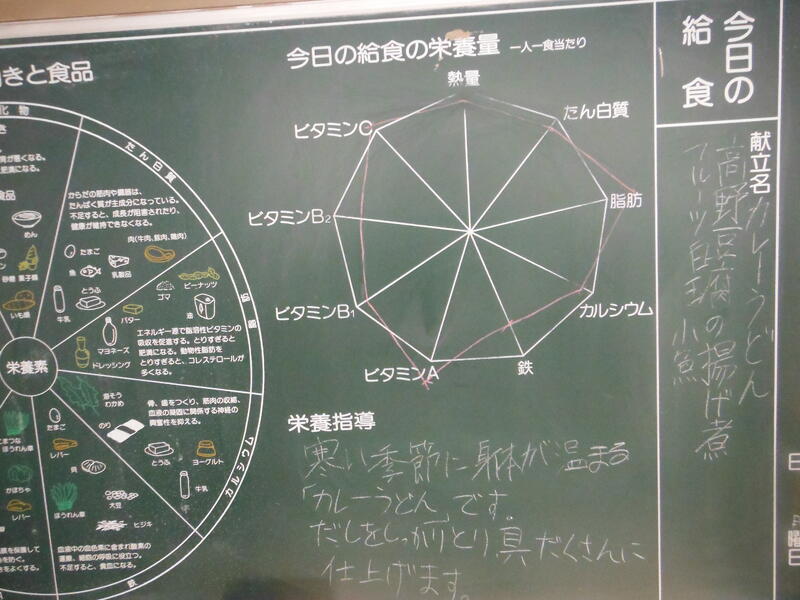 きと食品
化物
めん
砂糖 菓子類
いも類
たん白質
からだの筋肉や臓器は、
たんぱく質が主成分になっている。
不足すると、成長が阻害されたり、
健康が維持できなくなる。
肉(牛肉、豚肉、鶏肉)
たまご
魚
乳製品
牛乳
とうふ
脂肪
ピーナッツ
ゴマ
油
バター
マヨネーズ
ドレッシング
エネルギー源で脂溶性ビタミンの
吸収を促進する。とりすぎると
肥満になる。動物性脂肪を
とりすぎると、コレステロールが
多くなる。
栄養素
カルシウム
骨、歯をつくり、筋肉の収縮、
血液の凝固に関係する神経の
興奮性を抑える。
わかめ
のり
とうふ
ヨーグルト
牛乳
鉄
たまご
レバー
貝
大豆
ほうれん草
ヒジキ
血液中の血色素に含まれ酸素の
運搬、細胞の呼吸に役立つ。
不足すると、貧血になる。
こまつな
ほうれん草
かぼちゃ
レバー
今日の給食の栄養量 一人一食当たり
熱量
たん白質
脂肪
カルシウム
鉄
ビタミンA
ビタミンB1
ビタミンB2
ビタミンC
栄養指導
寒い季節に身体が温まる
「カレーうどん」です。
だしをしっかりとり、具だくさんに
仕上げます。
今日の
給食
献立名
カレーうどん
高野豆腐の揚げ煮
フルーツ白玉
小魚
曜
日